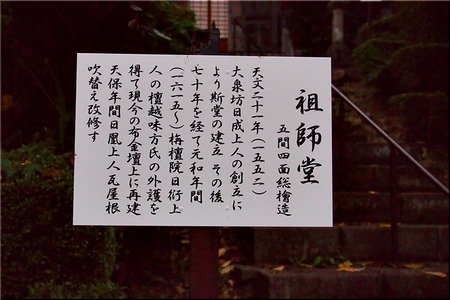 祖師堂
五間四面総檜造
天文二十一年(一五五二)
大泉坊日成上人の創立に
より斯堂の建立 その後
七十年を経て元和年間
(一六一五〜)栴檀院日衍上
人の檀越味方氏の外護を
得て現今の布金壇上に再建
天保年間日凰上人瓦屋根
吹替え改修す